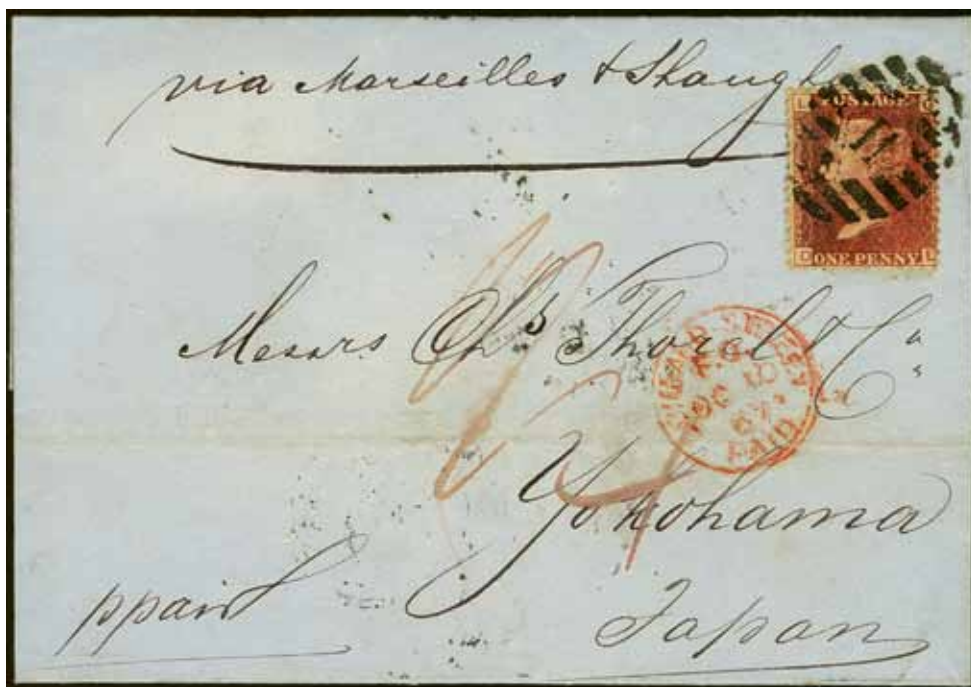 via Marseilles & Shangh
POSTAGE
ONE PENNY
Messrs Chs Thorel & Co
PAID
Yokohama
ppaid
Japan